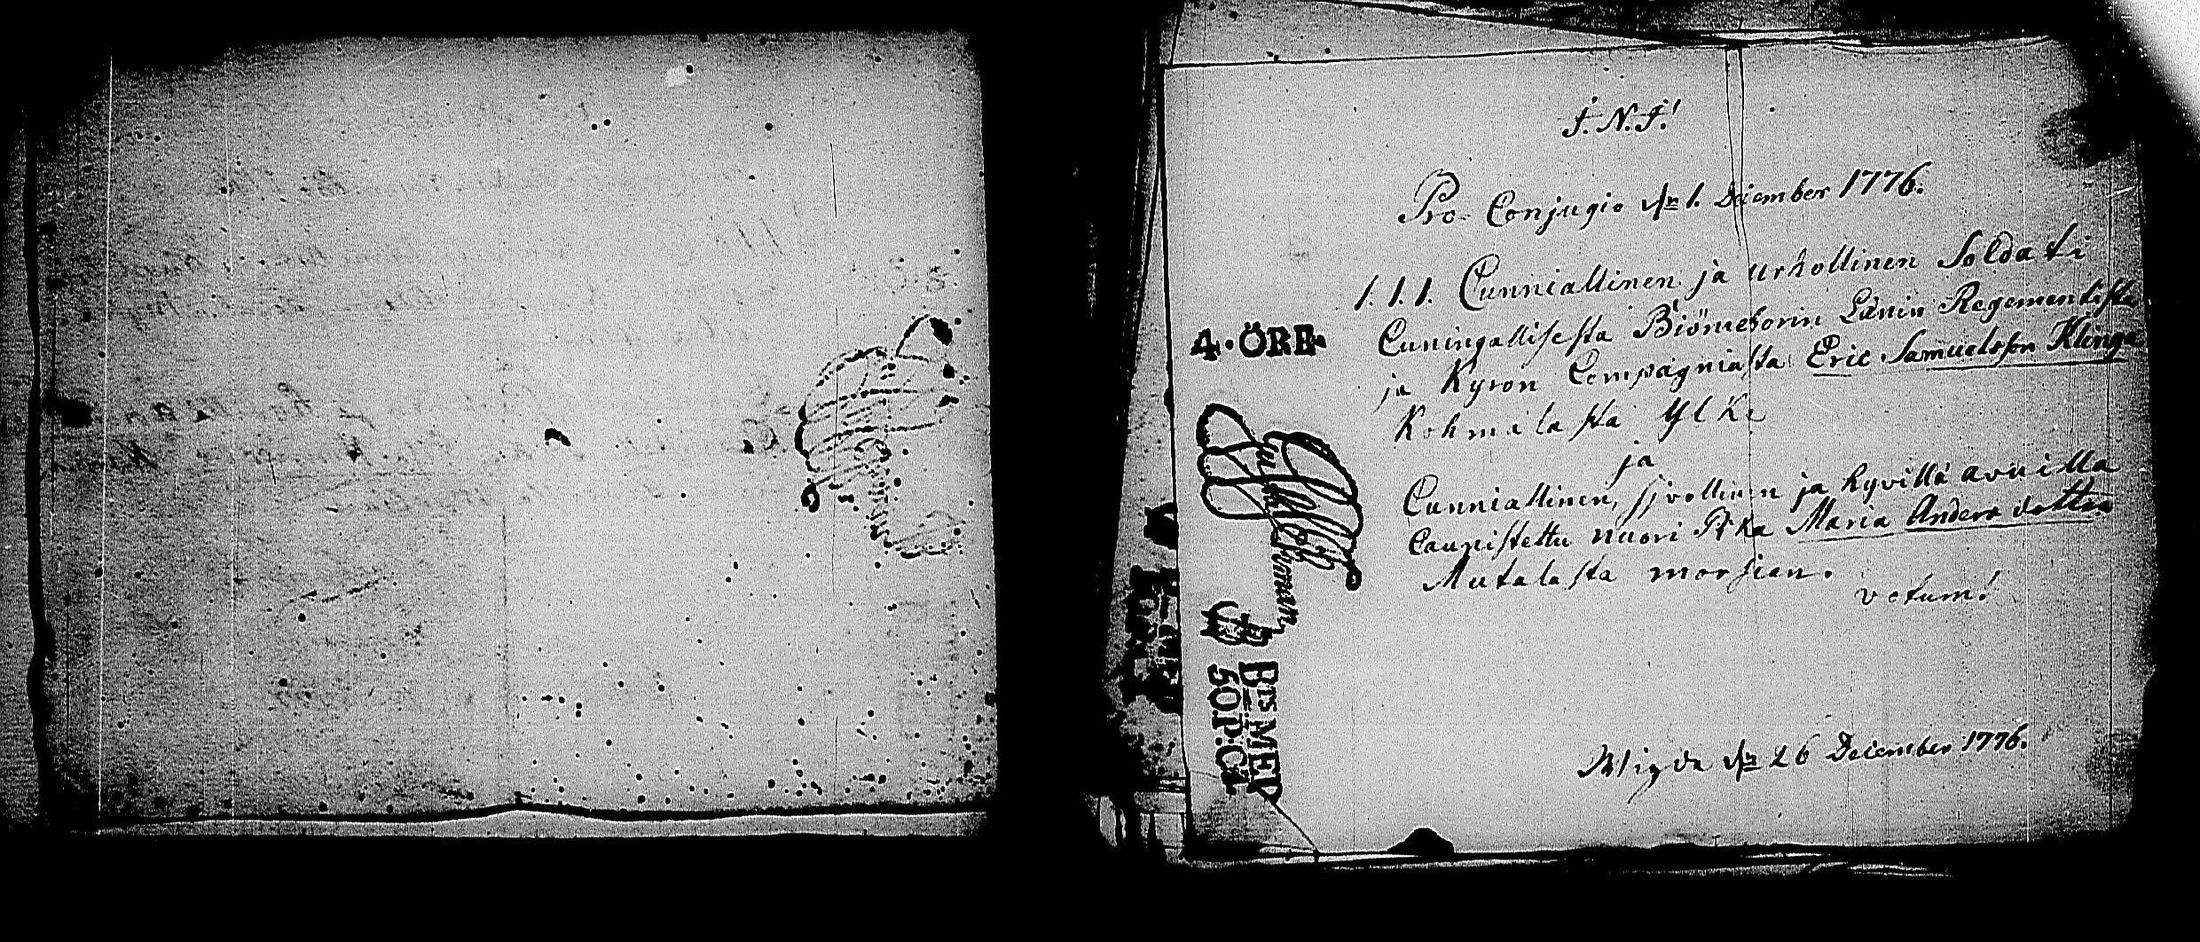 J. N. J!
Pro Conjugio dn 1. December 1776.
1. 1. 1. Cunniallinen ja urhollinen Soldati
Cuningallisesta Biörneborin Länin Regementista
ja Kyron Compagniasta Eric Samuelsson Kling
Kohmalasta Ylkä
ja
Cunniallinen, sivollinen ja hyvillä avuilla
caunistettu nuori Pika Maria Anders dotter
Mutalasta morsian.
votum!
dn 26 December 1776.
4·ÖRE·
BTS MEP
50 P:CT